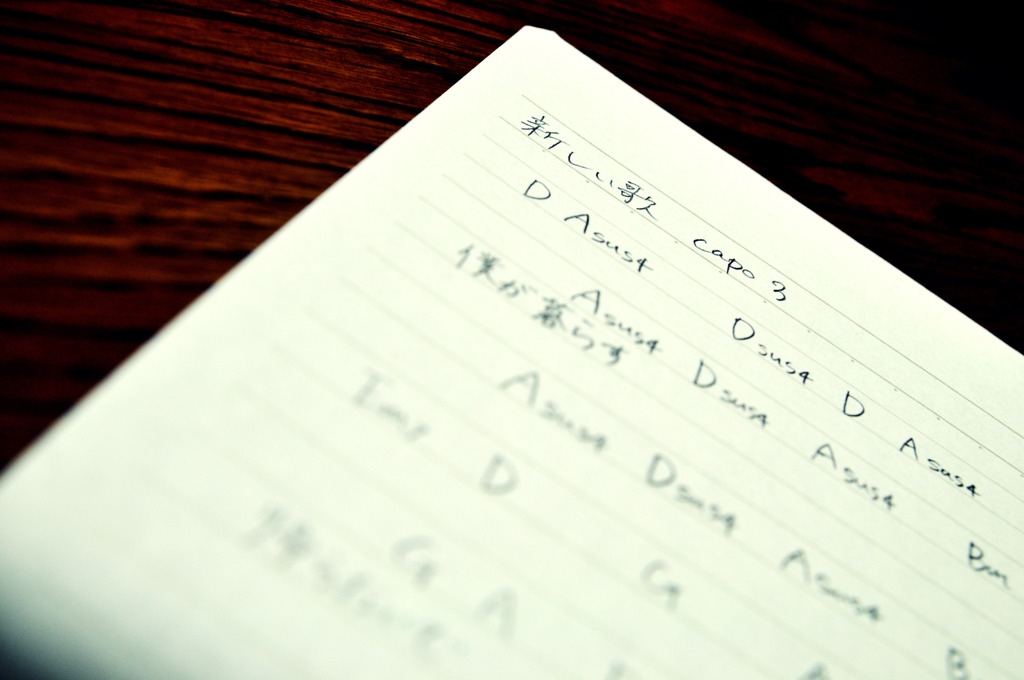 新しい歌 capo 3
D Asus4 Dsus4 D Asus4
Asus4 Dsus4 Asus4 Bm
僕が暮らす
Asus4 Dsus4 Asus4 B
D G
G A